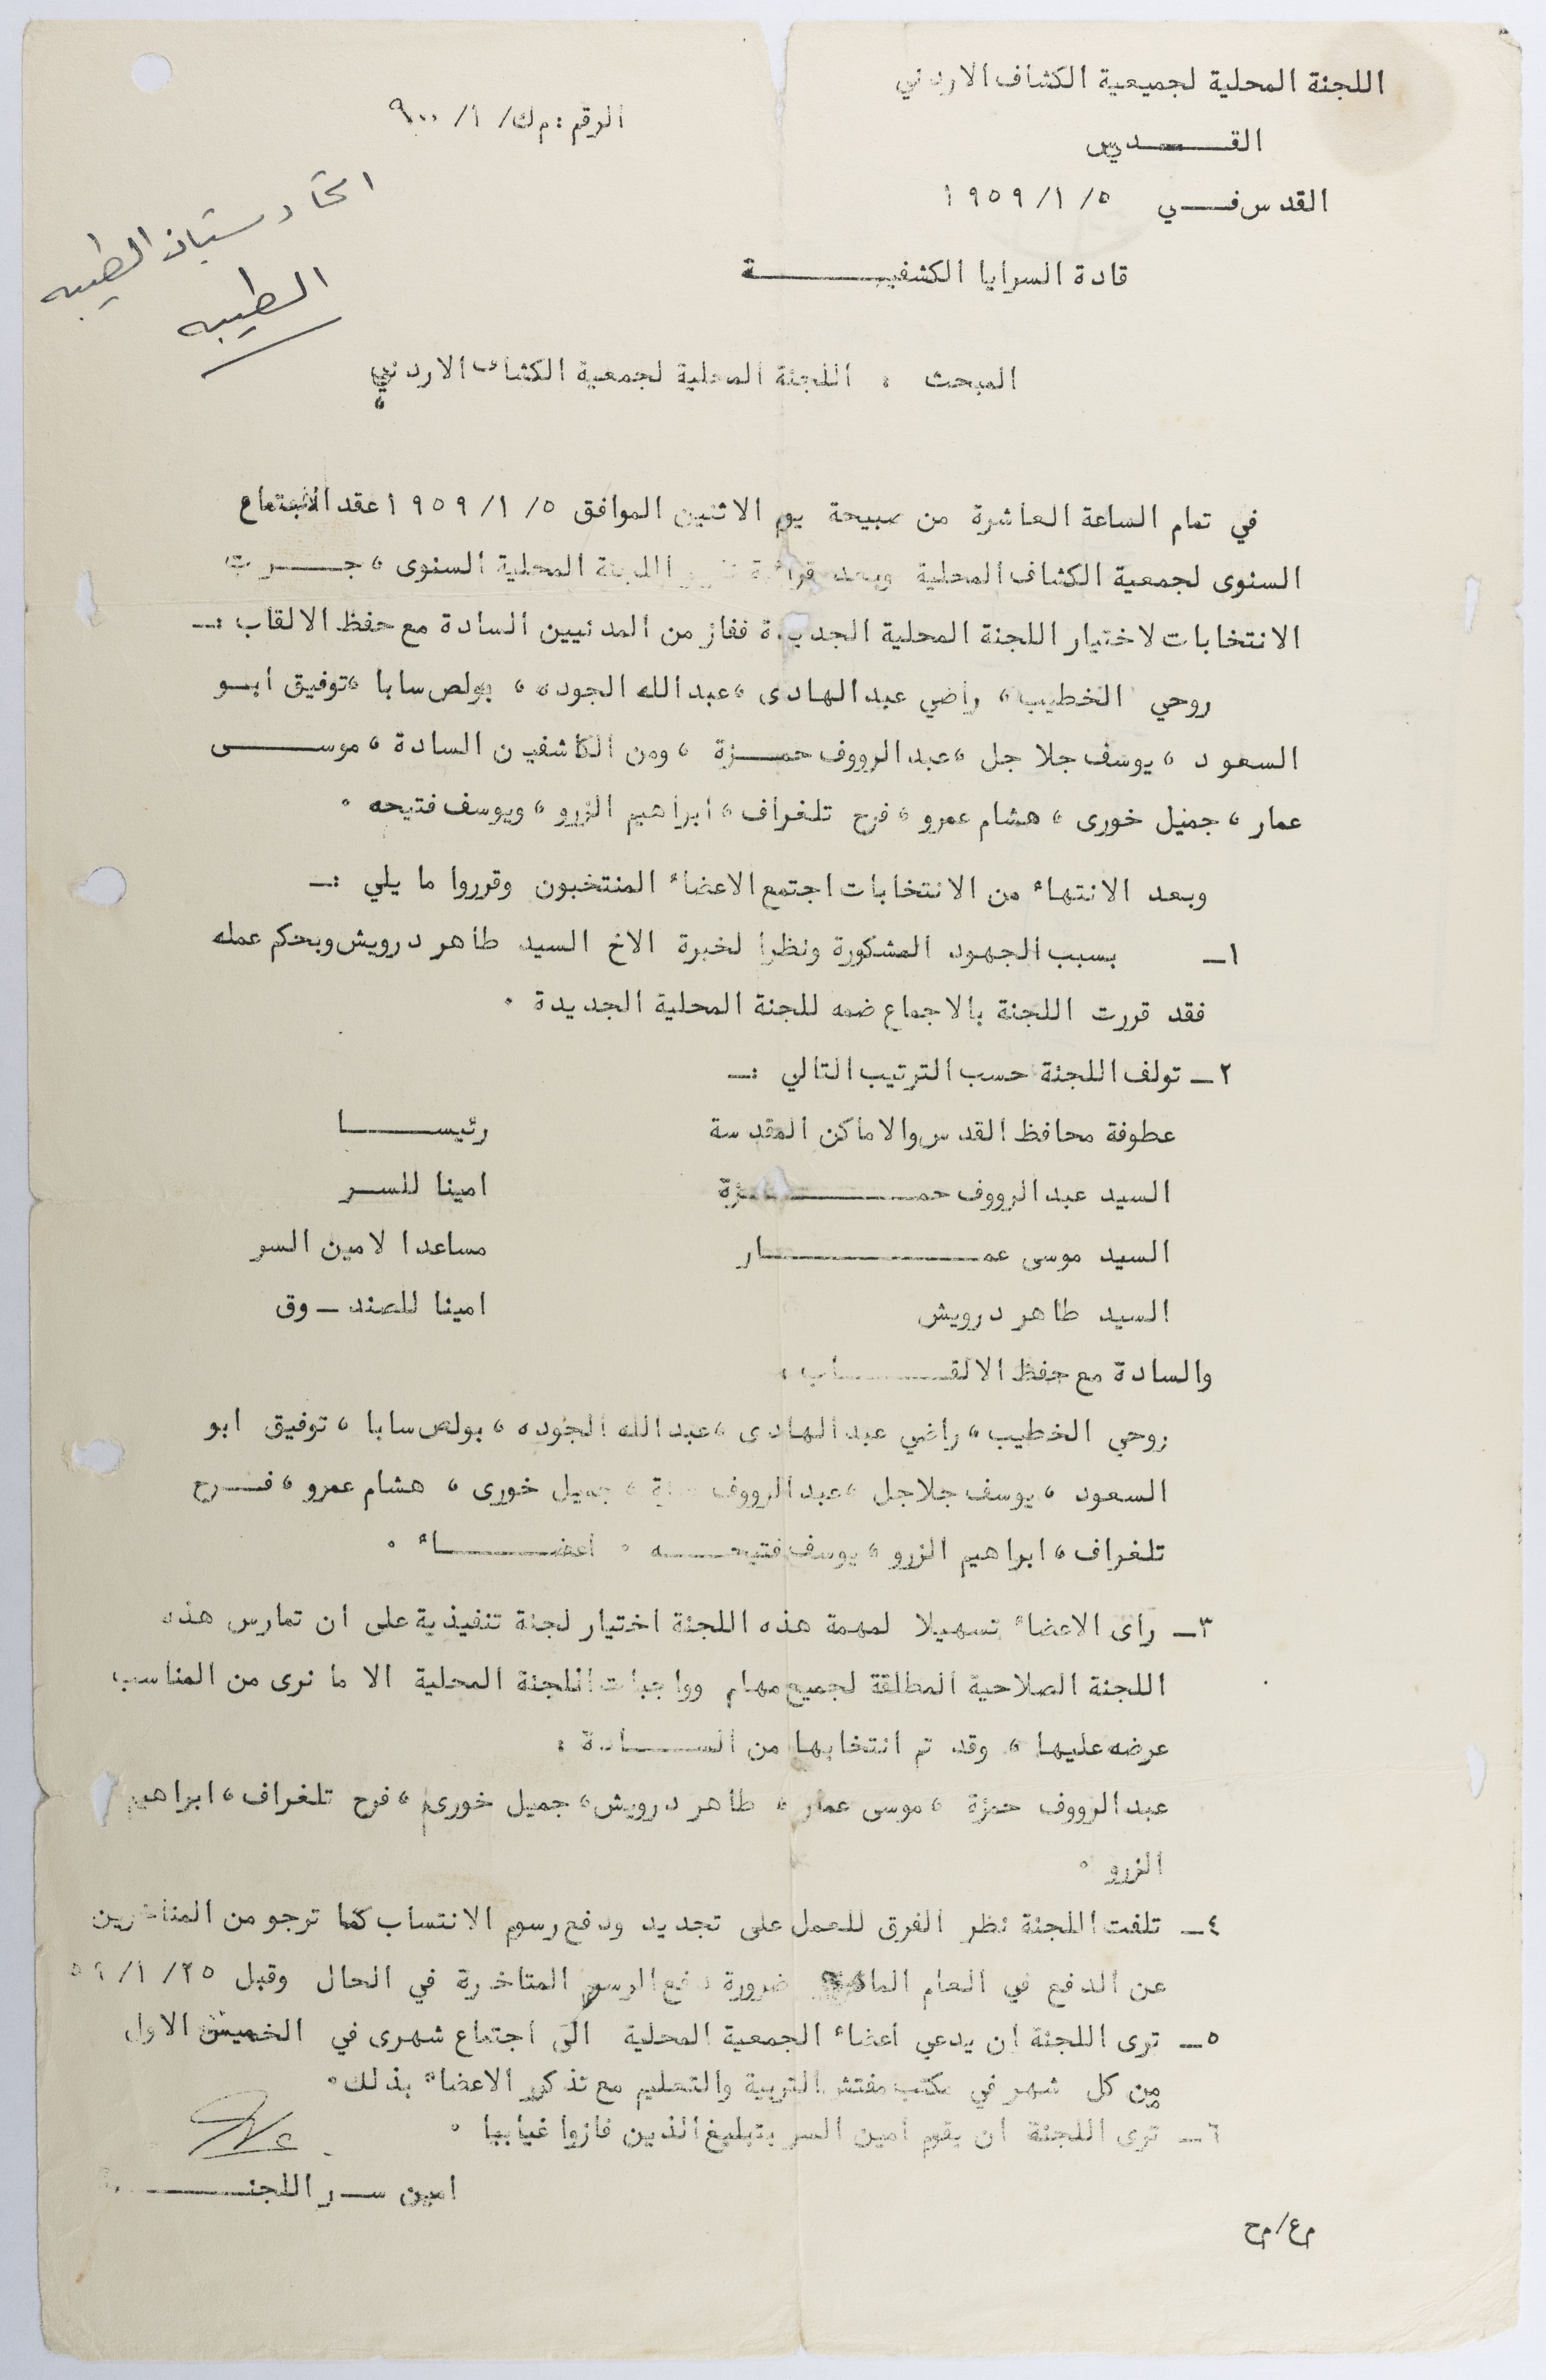 اللجنة المحلية لجميعية الكشاف الاردني
الرقم : م ك/ ١/ ٩٠٠
القـــدس
القدس فــي ١٩٥٩/١/٥
اتحاد شبان الطيبه
الطيبه
قادة السرايا الكشفيــــــة
المبحث : اللجنة المحلية لجمعية الكشاف الاردني
في تمام الساعة العاشرة من صبيحة يوم الاثنين الموافق ١٩٥٩/١/٥ عقد الاجتماع
السنوى لجمعية الكشاف المحلية وبعد قراءة تقرير اللجنة المحلية السنوى ، جــــرت
الانتخابات لاختيار اللجنة المحلية الجديدة ففاز من المدنيين السادة مع حفظ الالقاب :ــ
روحي الخطيب ، راضي عبد الهادى ، عبد الله الجوده ، بولص سابا ، توفيق ابــو
السعود ، يوسف جلاجل ، عبد الرووف حمــزة ، ومن الكاشفين السادة ، موســــى
عمار ، جميل خورى ، هشام عمرو ، فرح تلغراف ، ابراهيم الزرو ، ويوسف فتيحه .
وبعد الانتهاء من الانتخابات اجتمع الاعضاء المنتخبون وقرروا ما يلي :ــ
١ــ بسبب الجهود المشكورة ونظرا لخبرة الاخ السيد طاهر درويش وبحكم عمله
فقد قررت اللجنة بالاجماع ضمه للجنة المحلية الجديدة .
٢ــ تولف اللجنة حسب الترتيب التالي :ــ
عطوفة محافظ القدس والاماكن المقدسة رئيســــا
السيد عبد الرووف حمــــــزة امينا للســر
السيد موسى عمــــــــار مساعدا لامين السر
السيد طاهر درويش امينا للصند ــ وق
والسادة مع حفظ الالقــــــاب :
روحي الخطيب ، راضي عبد الهادى ، عبد الله الجوده ، بولص سابا ، توفيق ابو
السعود ، يوسف جلاجل ، عبد الرووف حمزة ، جميل خورى ، هشام عمرو ، فــرح
تلغراف ، ابراهيم الزرو ، يوسف فتيحـــه . اعضــــــاء .
٣ــ راى الاعضاء تسهيلا لمهمة هذه اللجنة اختيار لجنة تنفيذية على ان تمارس هذه
اللجنة الصلاحية المطلقة لجميع مهام وواجبات اللجنة المحلية الا ما نرى من المناسب
عرضه عليها ، وقد تم انتخابها من الســــادة :
عبد الرووف حمزة ، موسى عمار ، طاهر درويش ، جميل خورى ، فرح تلغراف ، ابراهيم
الزرو .
٤ــ تلفت اللجنة نظر الفرق للعمل على تجديد ودفع رسوم الانتساب كما ترجو من المتاخرين
عن الدفع في العام الماضي ضرورة دفع الرسوم المتاخرة في الحال وقبل ٥٩/١/٢٥
٥ــ ترى اللجنة ان يدعي اعضاء الجمعية المحلية الى اجتماع شهرى في الخميس الاول
من كل شهر في مكتب مفتش التربية والتعليم مع تذكير الاعضاء بذلك .
٦ــ ترى اللجنة ان يقوم امين السر بتبليغ الذين فازوا غيابيا .
امين ســر اللجنــــــة
م ع/ م ح